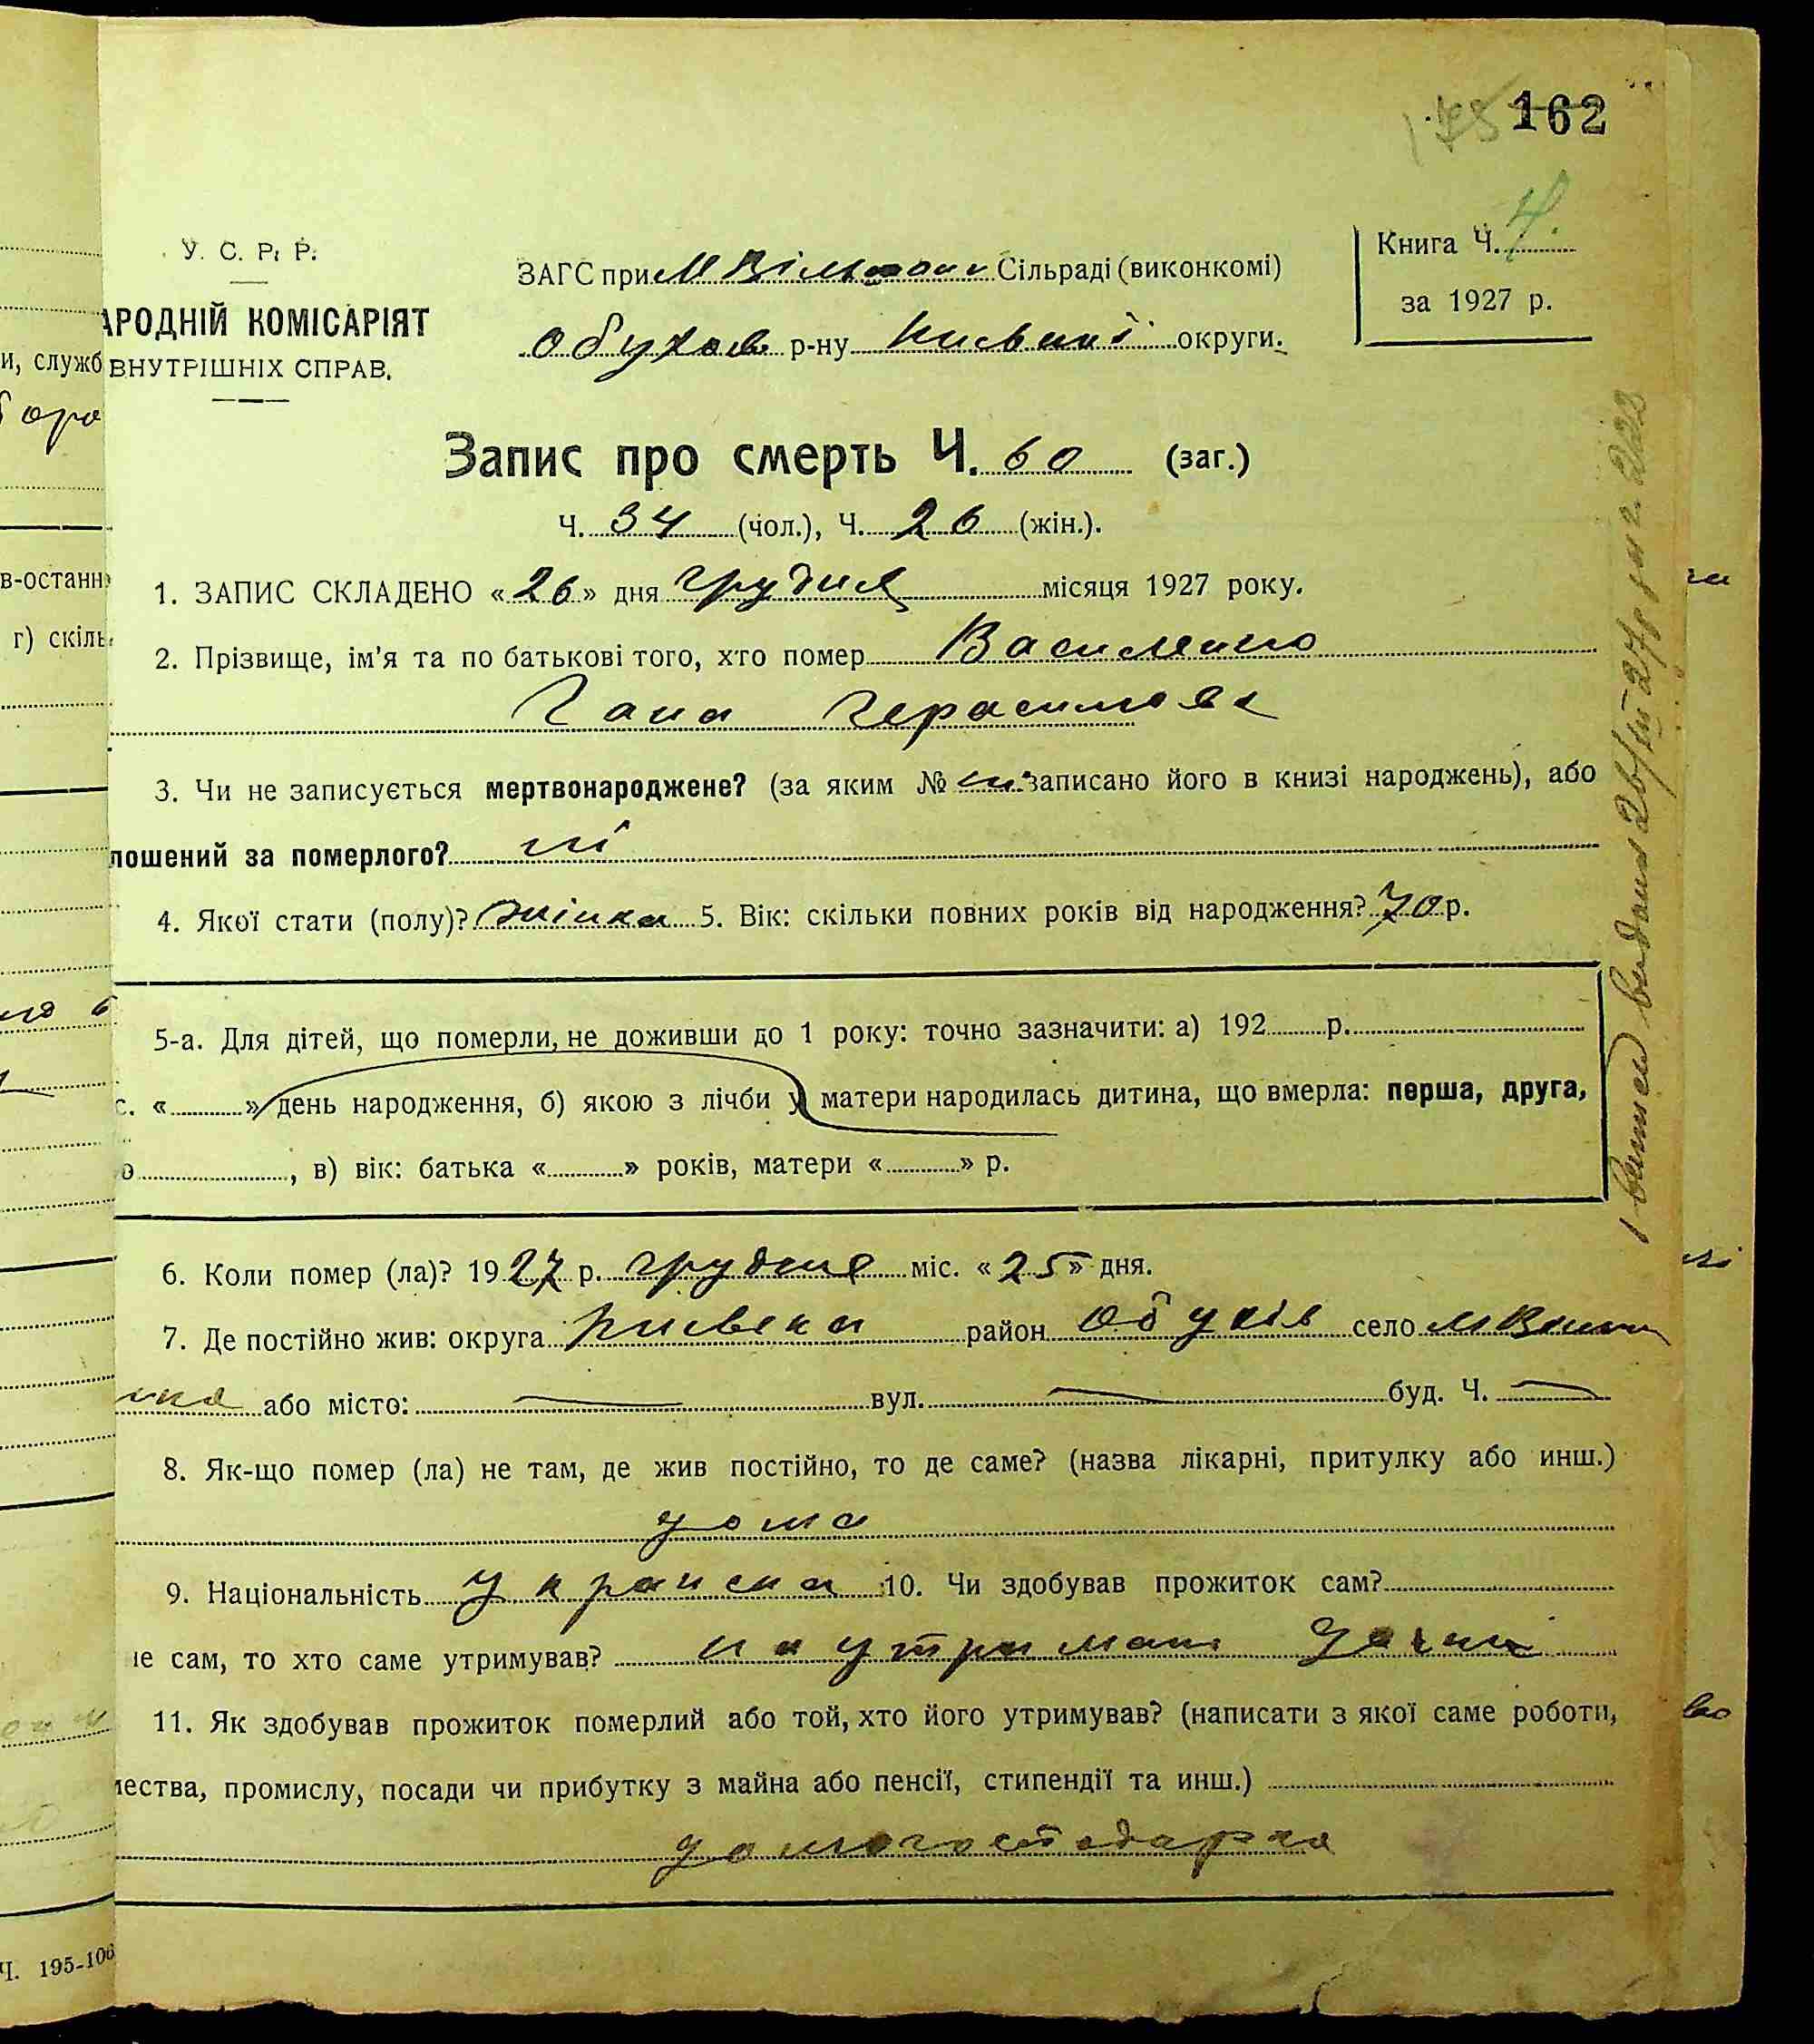 162
У. С. Р. Р.
АРОДНІЙ КОМІСАРІЯТ
ВНУТРІШНІХ СПРАВ.
ЗАГС при М Сільраді (виконкомі)
Обухов р-ну Київської округи.
Книга Ч. 4
за 1927 р.
Запис про смерть Ч. 60 (заг.)
Ч. 34 (чол.), Ч. 26 (жін.).
1. ЗАПИС СКЛАДЕНО «26» дня грудня місяця 1927 року.
2. Прізвище, ім'я та по батькові того, хто помер Василенко
Гана Герасимова
3. Чи не записується мертвонароджене? (за яким № ні записано його в книзі народжень), або
лошений за померлого? ні
4. Якої стати (полу)? жінка 5. Вік: скільки повних років від народження? 70 р.
5-а. Для дітей, що померли, не доживши до 1 року: точно зазначити: а) 192 р.
с. « » день народження, б) якою з лічби у матери народилась дитина, що вмерла: перша, друга,
о , в) вік: батька « » років, матери « » р.
6. Коли помер (ла)? 1927 р. грудня міс. «25» дня.
7. Де постійно жив: округа Київска район Обухів село
або місто: — вул. — буд. Ч. —
8. Як-що помер (ла) не там, де жив постійно, то де саме? (назва лікарні, притулку або инш.)
дома
9. Національність украинка 10. Чи здобував прожиток сам?
не сам, то хто саме утримував? на утримані дочки
11. Як здобував прожиток померлий або той, хто його утримував? (написати з якої саме роботи,
мества, промислу, посади чи прибутку з майна або пенсії, стипендії та инш.)
домогосподарка
и, служб
в-останн
г) скіль
Ч. 195-106